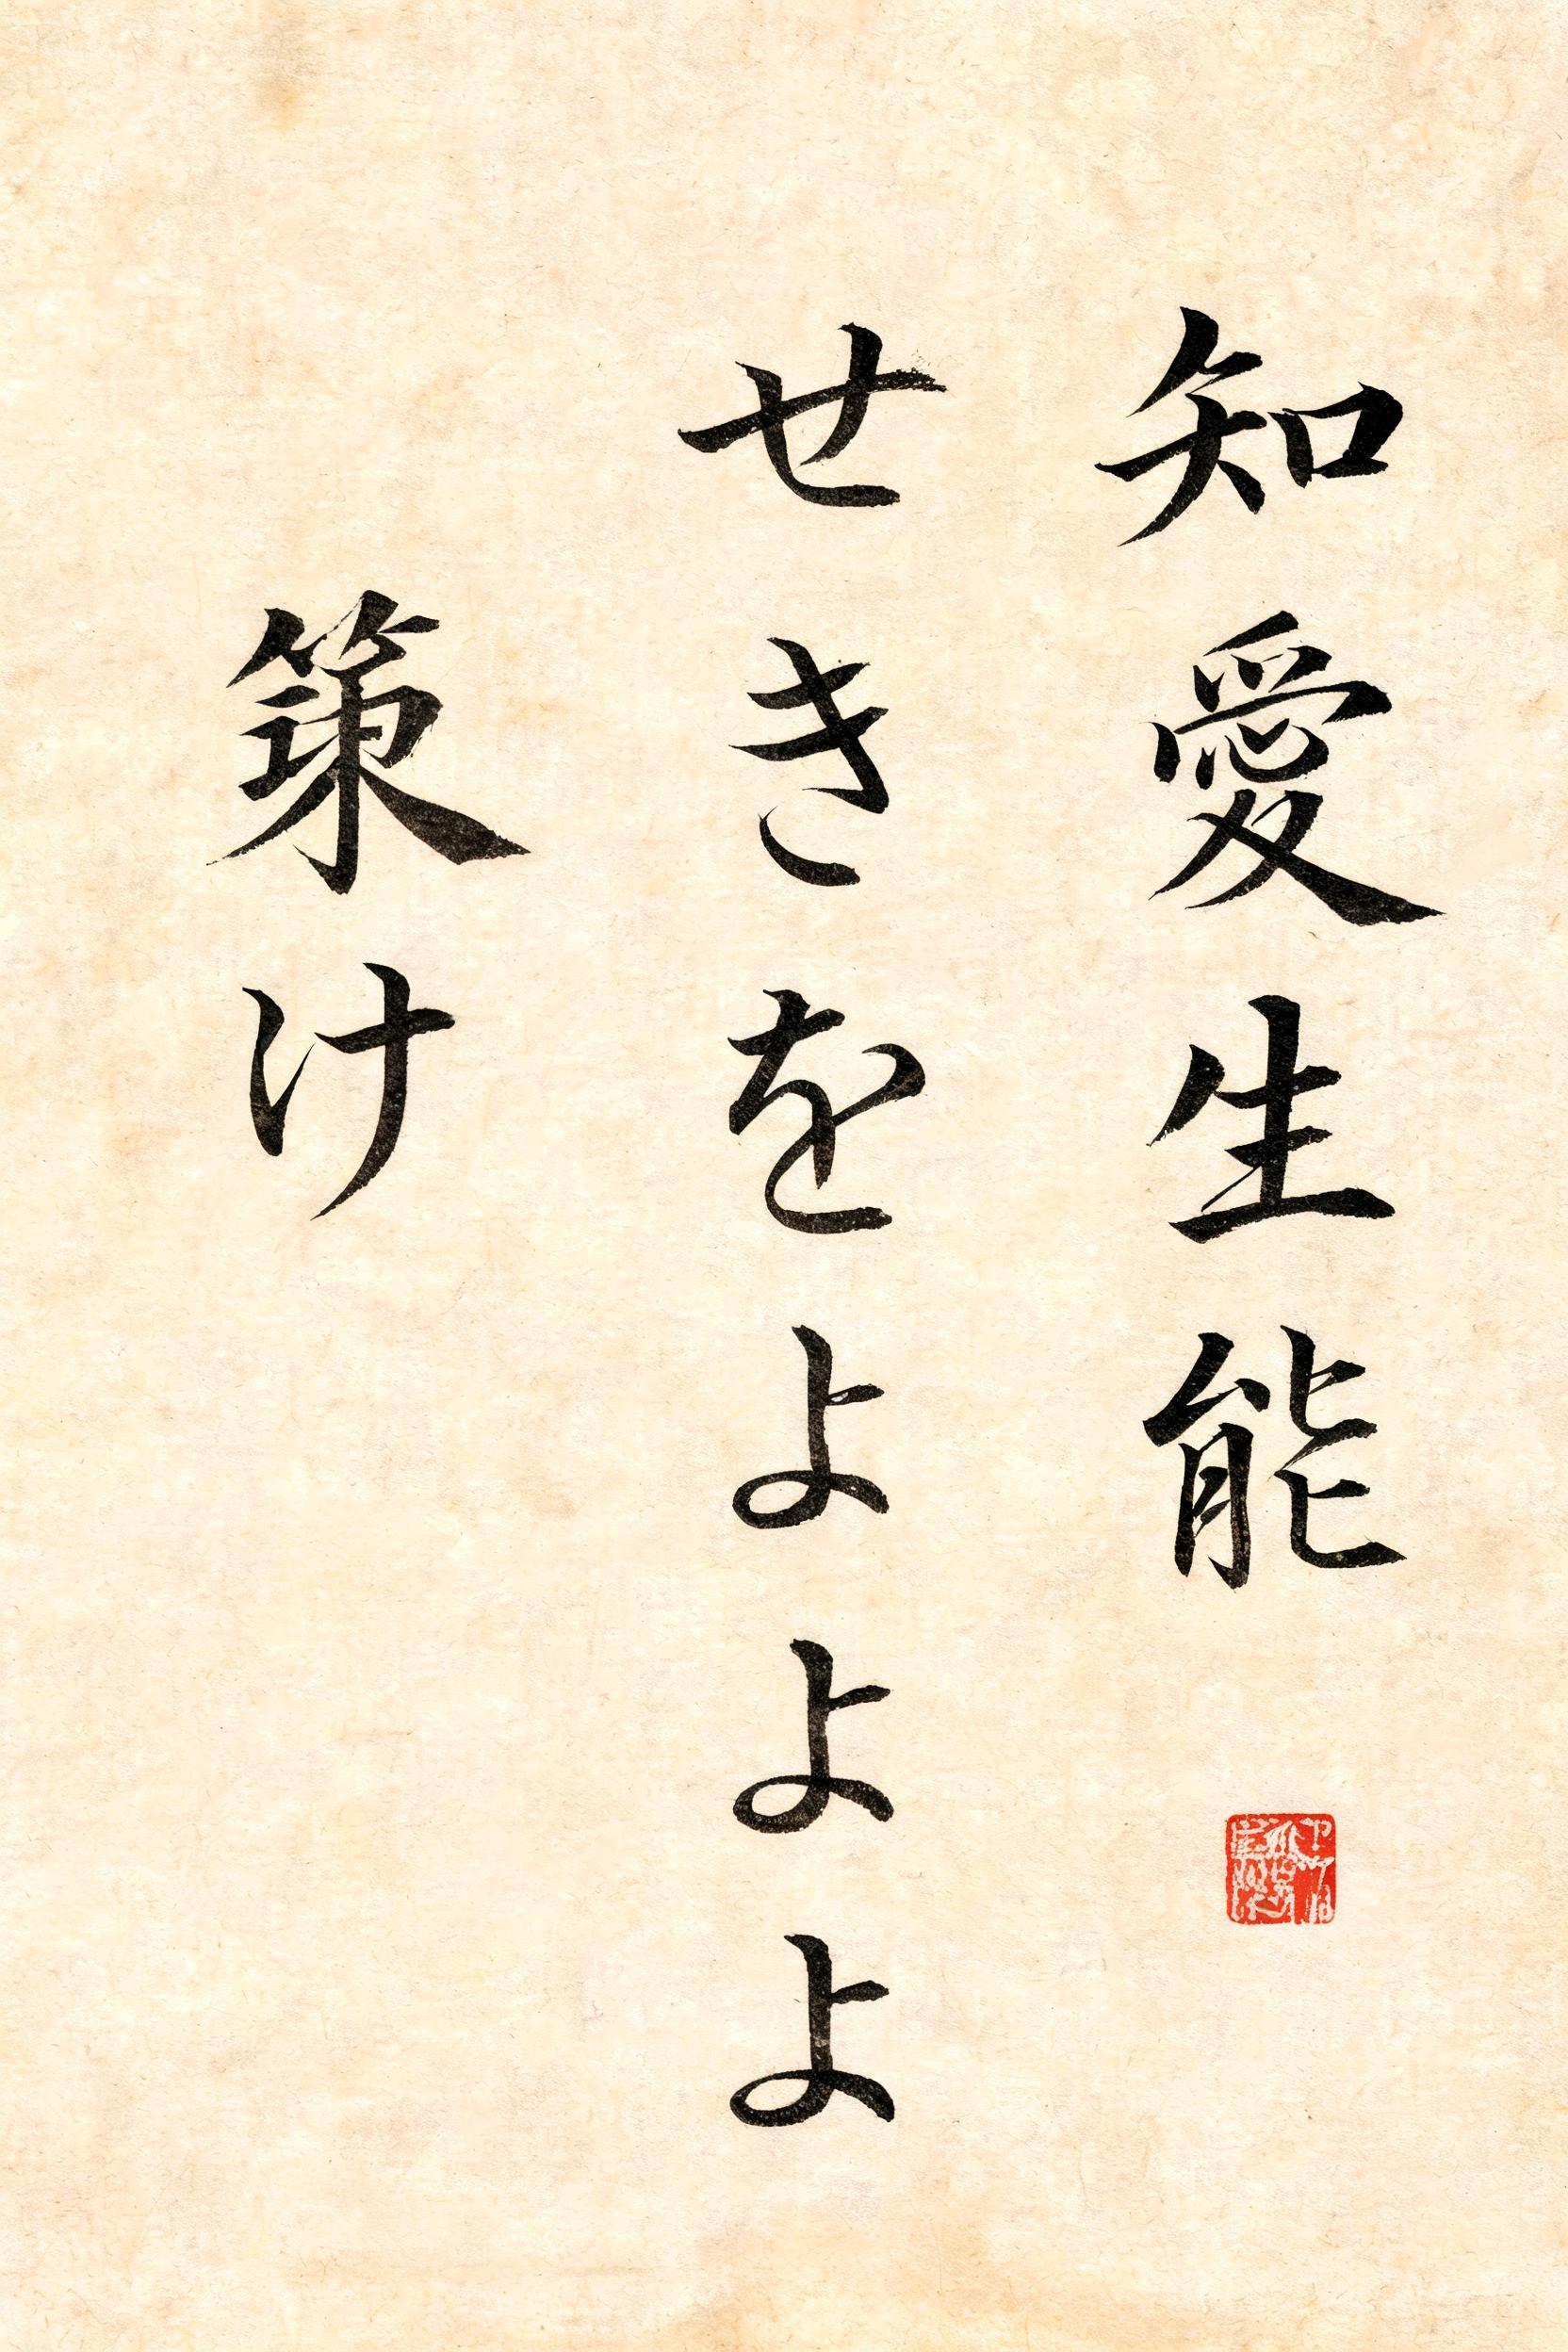 知愛生能
せきをよよよ
策け